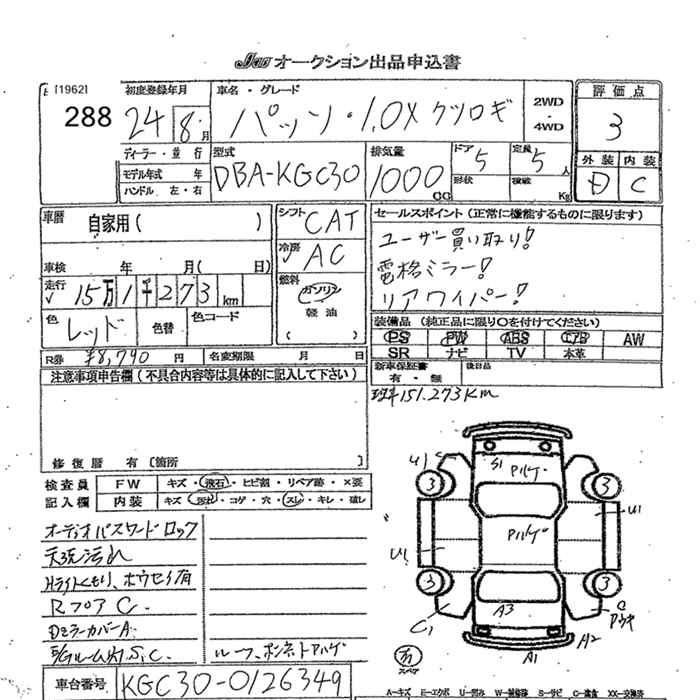 オークション出品申込書
[1962]
288
初度登録年月
24 8月
車名・グレード
パッソ・1.0X クツロギ
2WD
・
4WD
評価点
3
外装 内装
D C
ディーラー・並行
モデル年式 年
ハンドル 左・右
型式
DBA-KGC30
排気量
1000
CC
ドア
5
形状
定員
5人
積載
Kg
車歴
自家用( )
車検 年 月( 日)
走行
√ 15万1千273km
色
レッド
色替
色コード
R券 ¥8,790円 名変期限 月 日
シフト
CAT
冷房
AC
燃料
ガソリン
軽油
( )
セールスポイント(正常に機能するものに限ります)
ユーザー買い取り!
電格ミラー!
リアワイパー!
装備品 (純正品に限り○を付けてください)
PS PW ABS エアB AW
SR ナビ TV 本革
新車保証書
有・無
後日品
151.273Km
注意事項申告欄(不具合内容等は具体的に記入して下さい)
修復歴 有〔箇所 〕
検査員
記入欄
FW キズ・飛石・ヒビ割・リペア跡・×要
内装 キズ・汚れ・コゲ・穴・スレ・キレ・破レ
オーディオパスワードロック
天張汚れ
Hライトくもり、ホウセキ有
RフロアC.
DミラーカバーA
S.C.
ルーフ、ボンネトアルゲ
車台番号 KGC30-0126349
U1
S1
アルゲ
3
3
U1
アルゲ
U1
3
3
C1
A3
C
A1
A2
スペア
A-キズ E-エクボ U-凹み W-補修跡 S-サビ C-腐食 XX-交換済